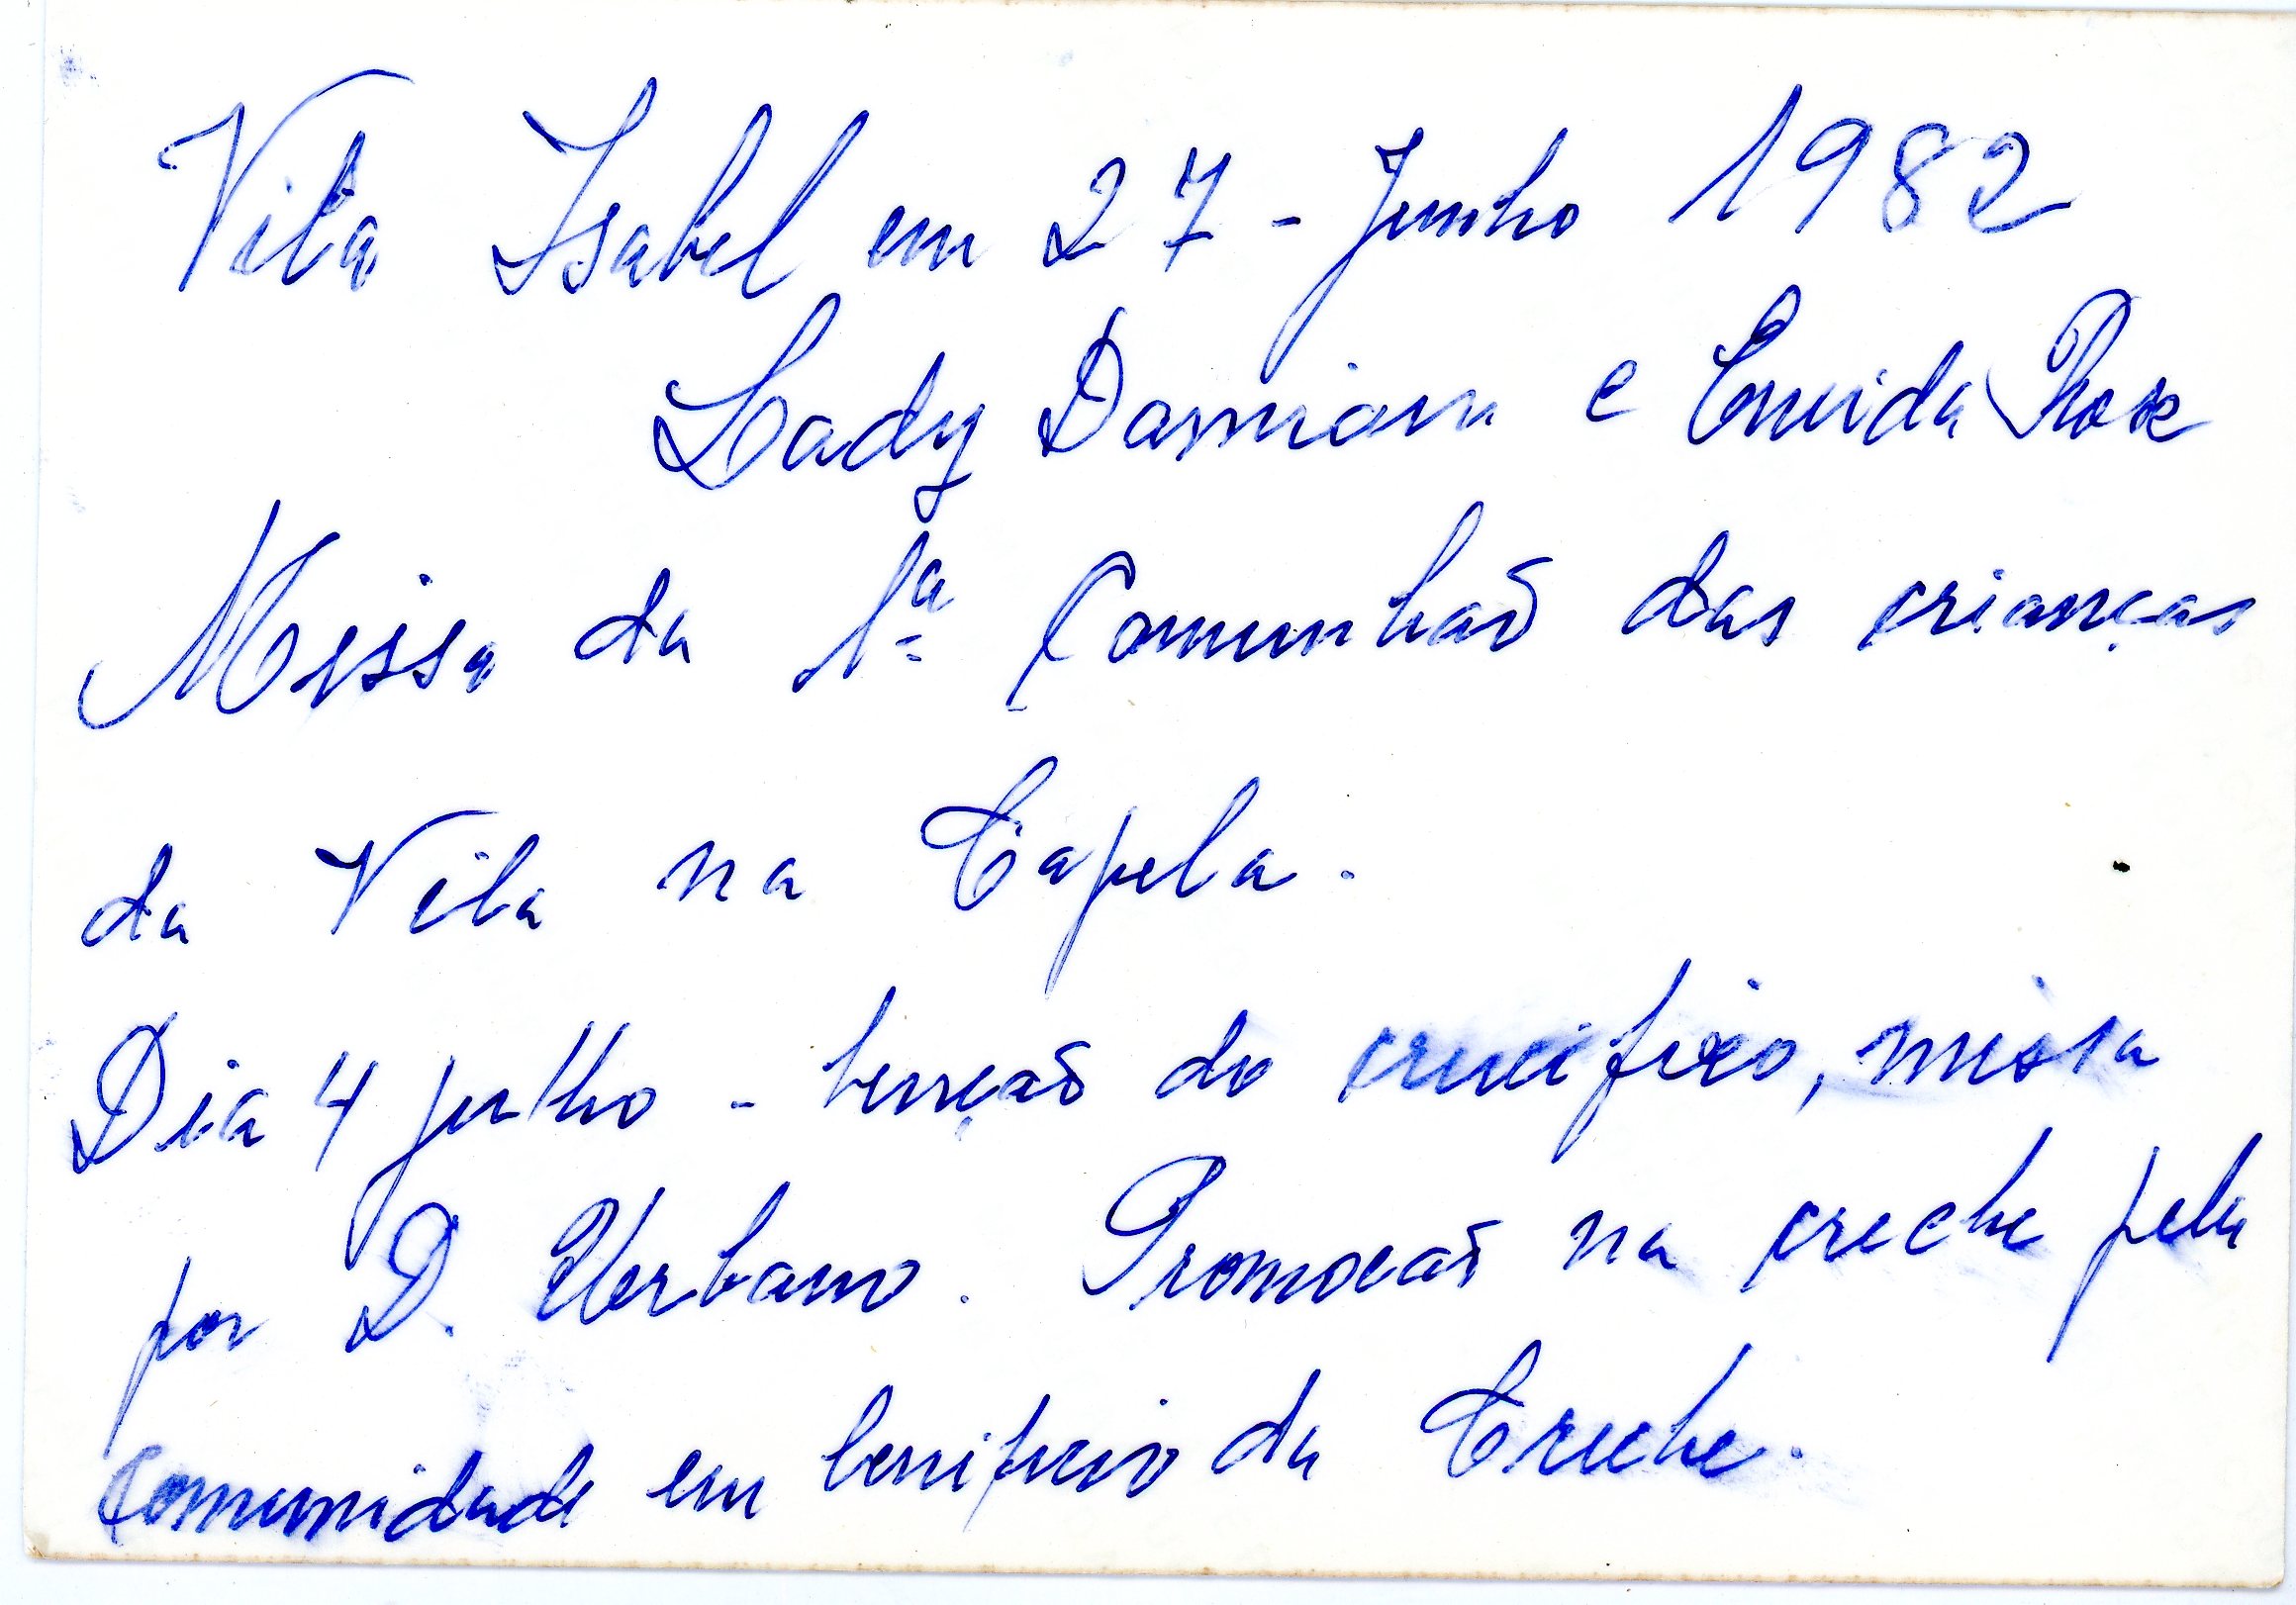 Vila Isabel em 27 - Junho 1982
Lady Damiani e Eneida Rok
Missa da 1ª Comunhão das crianças
da Vila na Capela.
Dia 4 julho - benção do crucifixo, missa
por D. Urbano. Promocão na creche pela
comunidade em benificio da Creche.